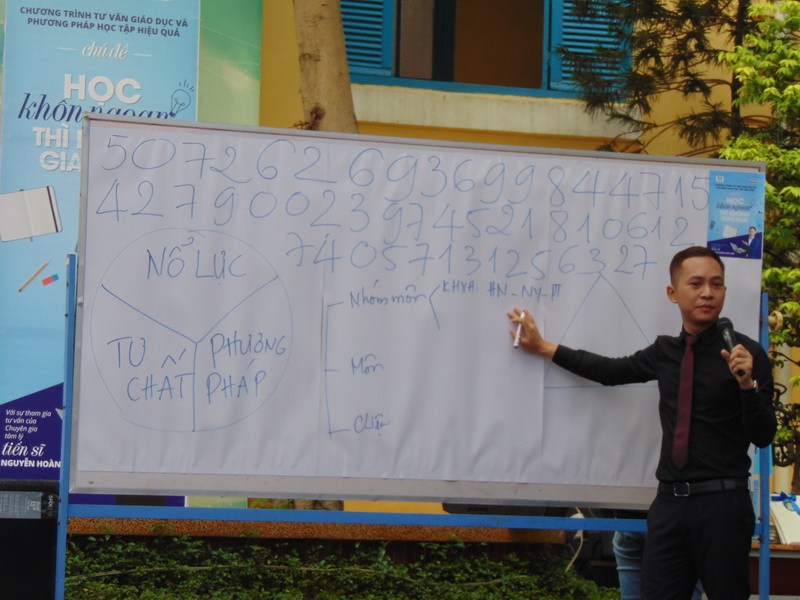 CHƯƠNG TRÌNH TƯ VẤN GIÁO DỤC VÀ
PHƯƠNG PHÁP HỌC TẬP HIỆU QUẢ
chủ đề
HỌC
khôn ngoan
THÌ
GIA
Với sự tham gia
tư vấn của
Chuyên gia
tâm lý
tiến sĩ
NGUYỄN HOÀN
507262693699844715
42790023974521810612
74057131256327
NỔ LỰC
TƯ CHẤT
PHƯƠNG PHÁP
Nhóm môn
KHXH: #N_NY_PT
Môn
HỌC